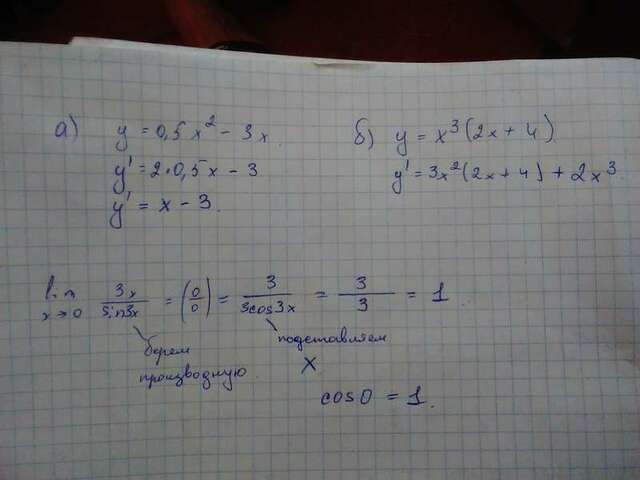 а) y = 0,5x² - 3x.
y' = 2·0,5x - 3
y' = x - 3.
б) y = x³(2x + 4)
y' = 3x²(2x + 4) + 2x³.
lim x→0 3x/sin3x = (0/0) = 3/3cos3x = 3/3 = 1
берем
производную
подставляем
x
cos0 = 1.